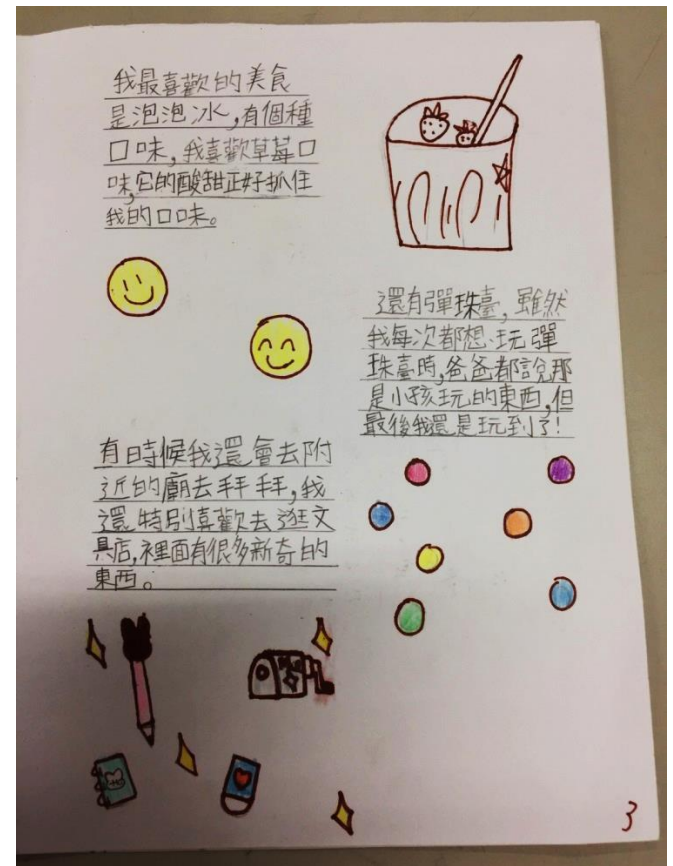 我最喜歡的美食
是泡泡冰,有個種
口味,我喜歡草莓口
味,它的酸甜正好抓住
我的口味。
還有彈珠臺,雖然
我每次都想玩彈
珠臺時,爸爸都說那
是小孩玩的東西,但
最後我還是玩到了!
有時候我還會去附
近的廟去拜拜,我
還特別喜歡去逛文
具店,裡面有很多新奇的
東西。
3